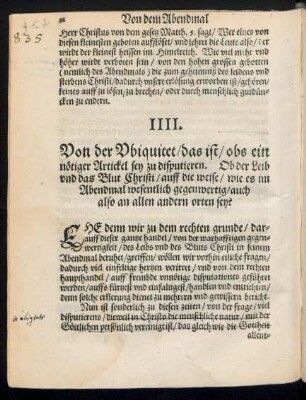 835
Von dem Abendmal
Herr Christus von dem gesetz Matth. 5. sagt/ Wer eines von
diesen kleinesten geboten aufflöset/ vnd lehret die Leute also/ der
wirdt der kleinest heissen im Himelreich. Wie viel mehr vnd
höher wirdt verboten sein/ von den hohen grossen gebotten
(nemlich des Abendmals) die zum geheimnus des leidens vnd
sterbens Christi/ dadurch vnsere erlösung erworben ist/ gehören/
keines auff zu lösen/ zu brechen/ oder durch menschlich gutdün-
cken zu endern.
IIII.
Von der Vbiquitet/ das ist/ obs ein
nötiger Artickel sey zu disputieren. Ob der Leib
vnd das Blut Christi/ auff die weise/ wie es im
Abendmal wesentlich gegenwertig/ auch
also an allen andern orten sey?
EHE denn wir zu dem rechten grunde/ dar-
auff dieser gantz handel/ von der warhafftigen gegen-
wertigkeit/ des Leibs vnd des Bluts Christi in seinem
Abendmal beruhet/ greiffen/ wöllen wir vorhin etliche fragen/
dadurch viel einfeltige hertzen verirret/ vnd von dem rechten
haupthandel/ auff frembde vnnötige disputationes geführet
werden/ auffs kürtzest vnd einfaltigest/ handlen vnd entrichten/
denn solche erklerung dienet zu mehrerm vnd gewissern bericht.
Nun ist sonderlich zu diesen zeiten/ von der frage/ viel
disputierens/ dieweil in Christo die menschliche natur/ mit der
Göttlichen persönlich vereinigt ist/ das gleich wie die Gottheit
allent-